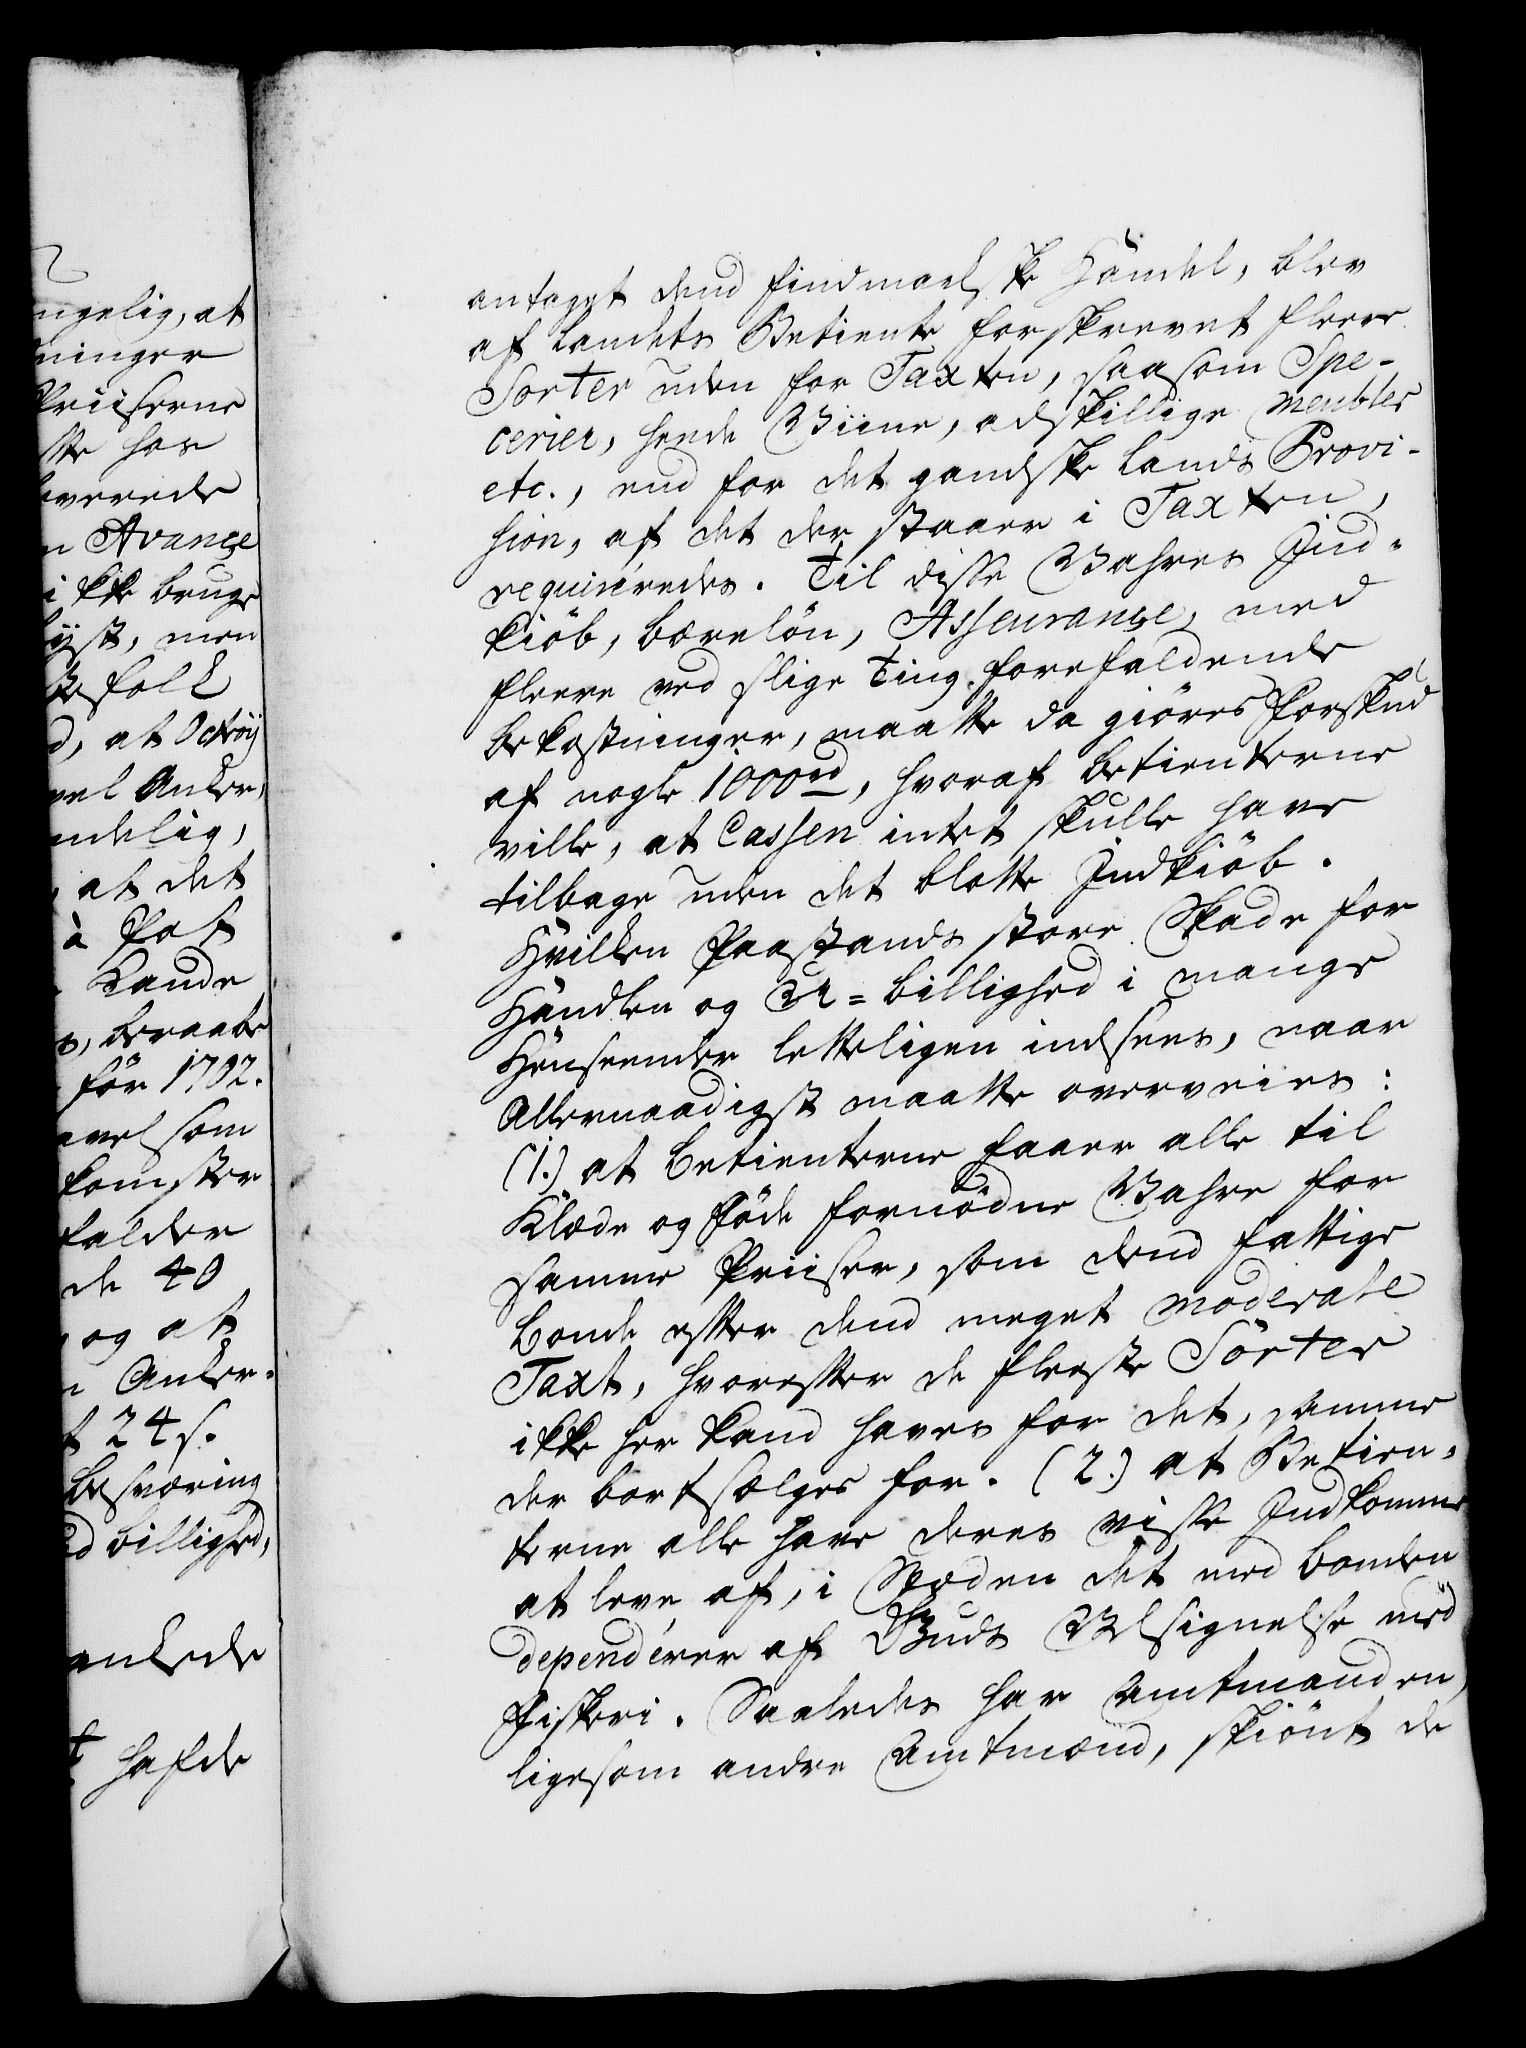 ngelig, at
ninger
Priiserne
tte hos
everede
n Avançe
ikke bruge
lyst, men
folk
d, at Octroij
vel Anker,
ndelig,
, at det
à Pot
Kande
s, beraabe
för 1702.
avel som
komster
falder
de 40
og at
n Anker-
t 24 s.
besværing
ed billighed,
ankede
t hafde
antaget dend Findmarkske Handel, blev
af Landets Betiente forskrevet fleere
Sorter uden for Taxten, saasom Spe-
cerier, heede Viine, adskillige Meubles
etc., end for det gandske Lands Provi-
sion, af det der staaer i Taxten,
requireredes. Til disse Vahres Ind-
kiöb, bæreløn, Asseurançe, med
fleere ved slige Ting forefaldende
bekostninger, maatte da giöres Forskud
af nogle 1000 rd, hvoraf betienterne
ville, at Cassen intet skulle have
tilbage uden det blotte Indkiöb.
Hvilken Paastands store Skade for
Handlen og U-billighed i mange
Henseender letteligen indsees, naar
Allernaadigst maatte overveies:
(1.) at Betienterne faaer alle til
Klæde og Föde fornödne Vahre for
samme Priiser, som dend fattige
bonde efter dend meget moderate
Taxt, hvorefter de fleeste Sorter
ikke her kand haves for det, samme
der bortsælges for. (2.) at Betien-
terne alle have deres visse Indkomme
at leve af, i Stæden det med bonden
dependérer af Guds Velsignelse med
Fiskeri. Saaledes har Amtmanden,
ligesom andre Amtmænd, skiönt de